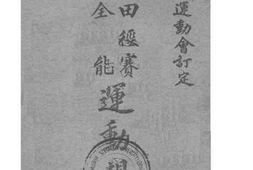 運動會訂定
田徑賽
全能
運動規